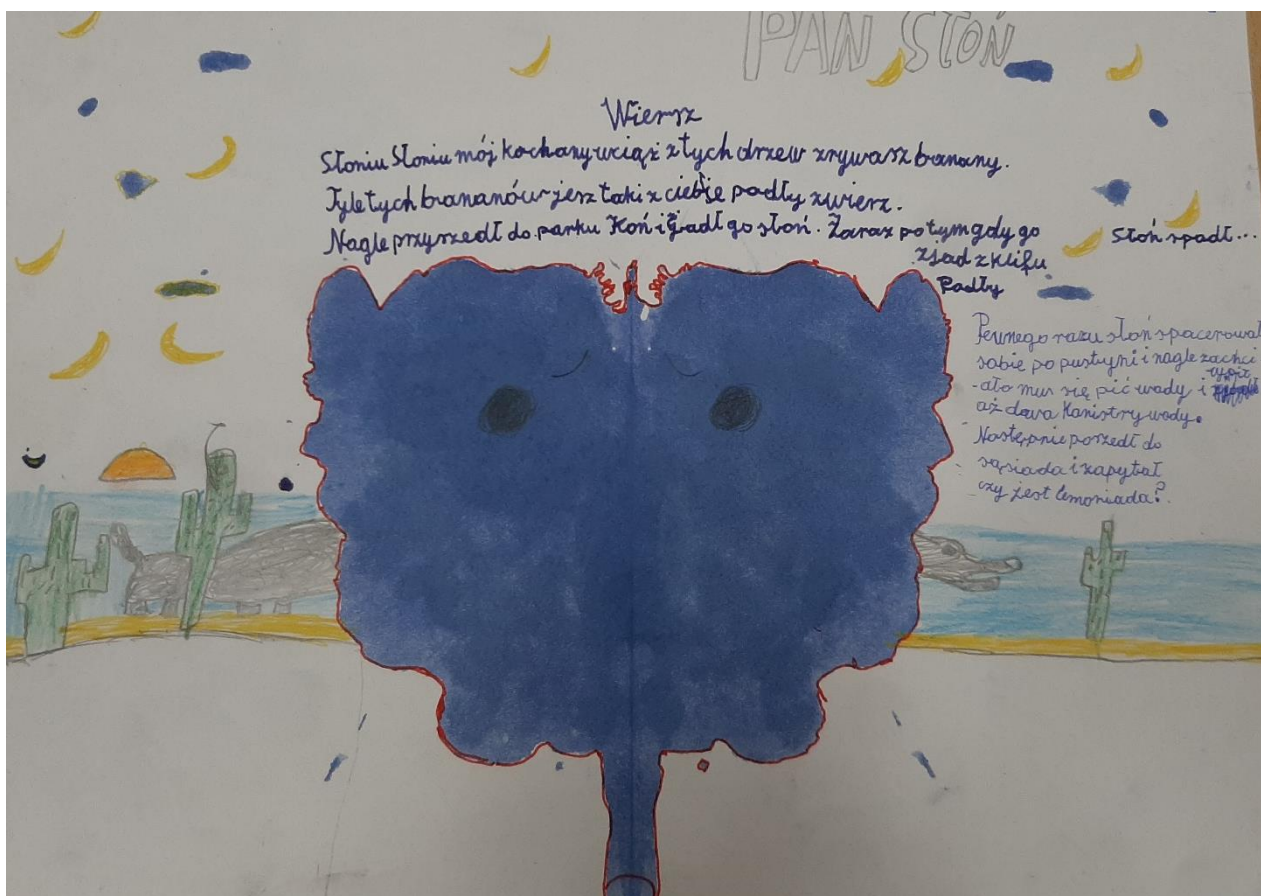 PAN SŁOŃ
Wiersz
Słoniu Słoniu mój kochany wciąż z tych drzew zrywasz banany.
Tyle tych brananów jesz taki z ciebie podły zwierz.
Nagle przyszedł do parku Koń i zjadł go słoń. Zaraz po tym gdy go
zjad z klifu
Padły
Słoń spadł...
Pewnego razu słoń spacerował
sobie po pustyni i nagle zachci
-ało mu się pić wody i wypił
aż dwa Kanistry wody.
Następnie poszedł do
sąsiada i zapytał
czy jest lemoniada?